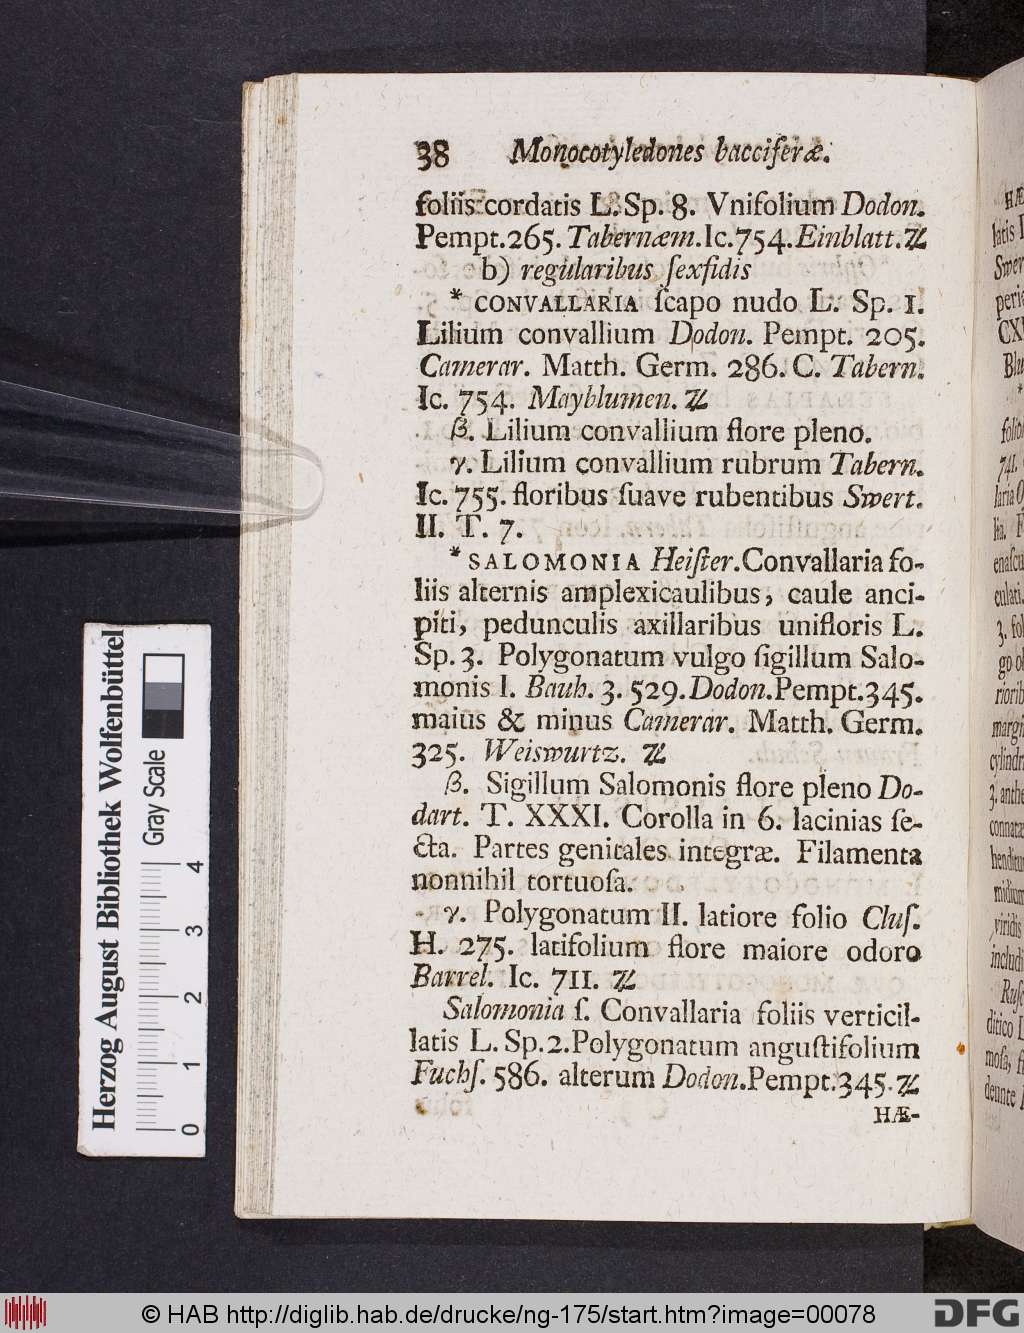 38 Monocotyledones bacciferæ.
foliis cordatis L. Sp. 8. Vnifolium Dodon.
Pempt. 265. Tabernæm. Ic. 754. Einblatt. ♃
b) regularibus ſexfidis
* CONVALLARIA ſcapo nudo L. Sp. 1.
Lilium convallium Dodon. Pempt. 205.
Camerar. Matth. Germ. 286. C. Tabern.
Ic. 754. Mayblumen. ♃
β. Lilium convallium flore pleno.
γ. Lilium convallium rubrum Tabern.
Ic. 755. floribus ſuave rubentibus Swert.
II. T. 7.
* SALOMONIA Heiſter. Convallaria fo-
liis alternis amplexicaulibus, caule anci-
piti, pedunculis axillaribus unifloris L.
Sp. 3. Polygonatum vulgo ſigillum Salo-
monis I. Bauh. 3. 529. Dodon. Pempt. 345.
maius & minus Camerar. Matth. Germ.
325. Weiswurtz. ♃
β. Sigillum Salomonis flore pleno Do-
dart. T. XXXI. Corolla in 6. lacinias ſe-
cta. Partes genitales integræ. Filamenta
nonnihil tortuoſa.
γ. Polygonatum II. latiore folio Cluſ.
H. 275. latifolium flore maiore odoro
Barrel. Ic. 711. ♃
Salomonia ſ. Convallaria foliis verticil-
latis L. Sp. 2. Polygonatum anguſtifolium
Fuchſ. 586. alterum Dodon. Pempt. 345. ♃
HÆ-
Herzog August Bibliothek Wolfenbüttel
Gray Scale
0 1 2 3 4
© HAB http://diglib.hab.de/drucke/ng-175/start.htm?image=00078
DFG